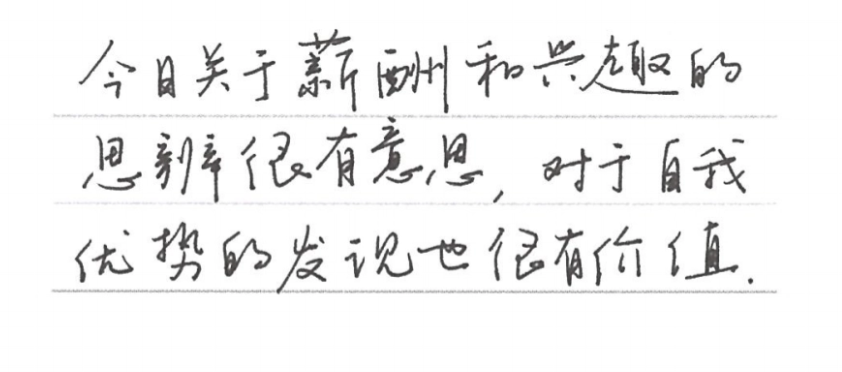 今日关于薪酬和兴趣的
思辨很有意思，对于自我
优势的发现也很有价值.